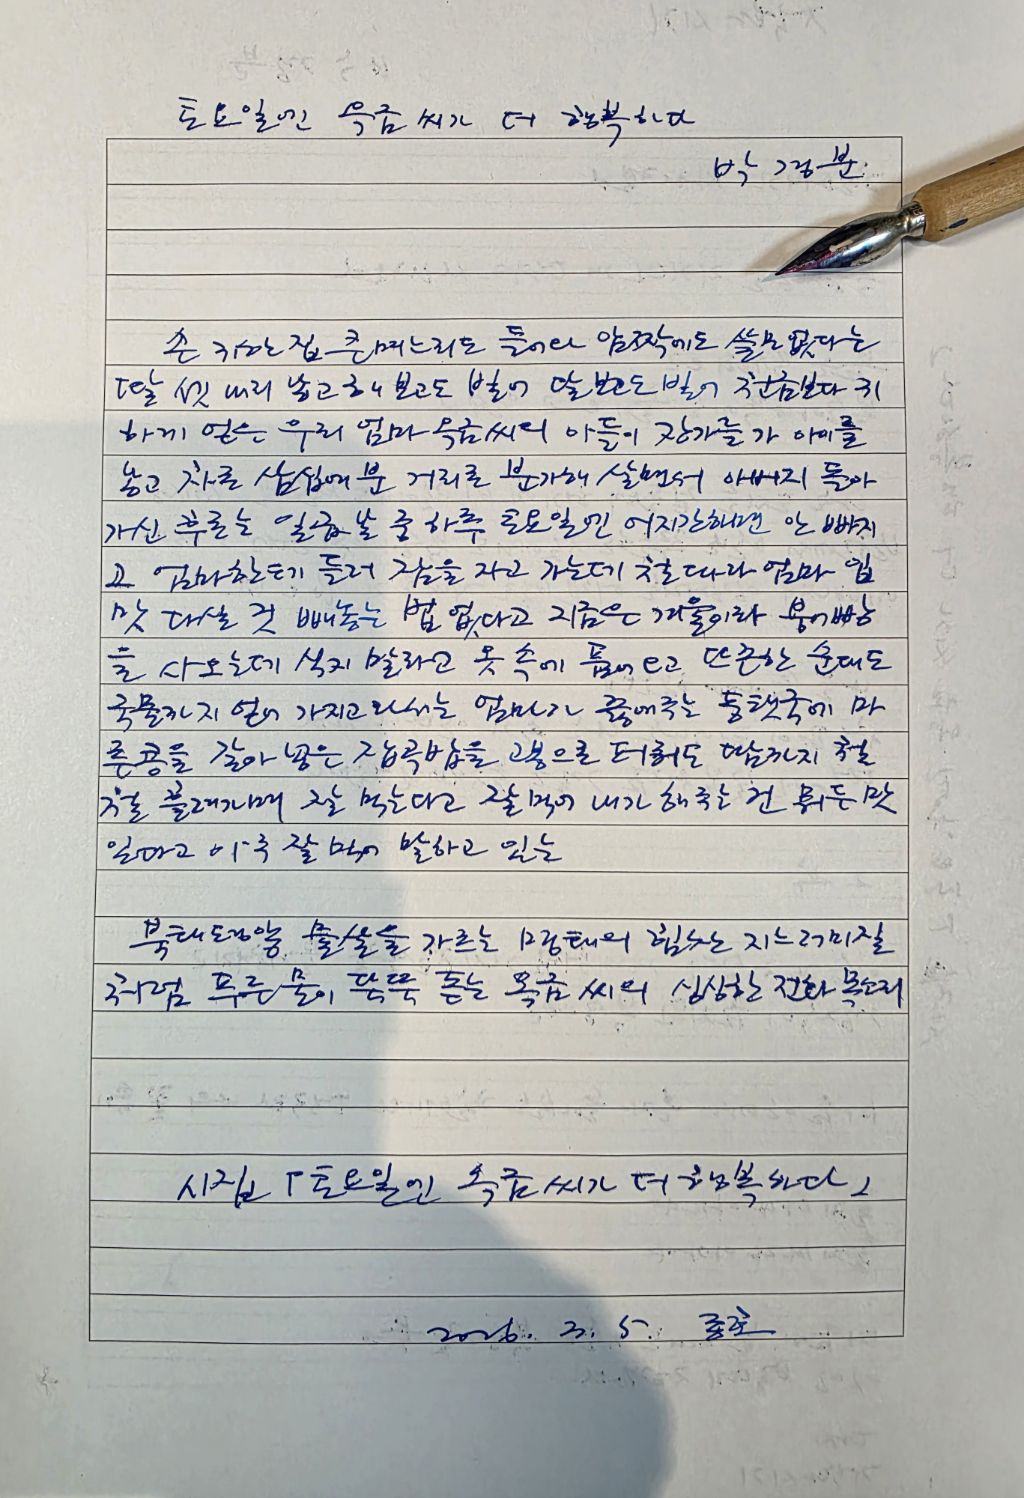 토요일엔 옥금씨가 더 행복하다
박 경분
손 귀한 집 큰며느리로 들어와 암짝에도 쓸모없다는
딸 셋 내리 낳고 해 보고도 빌어 달 보고도 빌어 천금보다 귀
하게 얻은 우리 엄마 옥금씨의 아들이 장가를 가 아이를
낳고 차로 삼십여 분 거리로 분가해 살면서 아버지 돌아
가신 후로는 일곱 날 중 하루 토요일엔 어지간하면 안 빠지
고 엄마한테 들러 잠을 자고 가는데 철 따라 엄마 입
맛 다실 것 빼놓는 법 없다고 지금은 겨울이라 붕어빵
을 사오는데 식지 말라고 옷 속에 품어 오고 뜨끈한 순대도
국물까지 얻어 가지고 와서는 엄마가 끓여주는 동탯국에 마
른콩을 갈아 넣은 잡곡밥을 고봉으로 퍼줘도 땀까지 철
철 흘려가며 잘 먹는다고 잘 먹어 내가 해 주는 건 뭐든 맛
있다고 아주 잘 먹어 말하고 있는
북태평양 물살을 가르는 명태의 힘찬 지느러미질
처럼 푸른 물이 뚝뚝 듣는 옥금 씨의 싱싱한 전화 목소리
시집 「토요일엔 옥금씨가 더 행복하다」
2026. 3. 5.